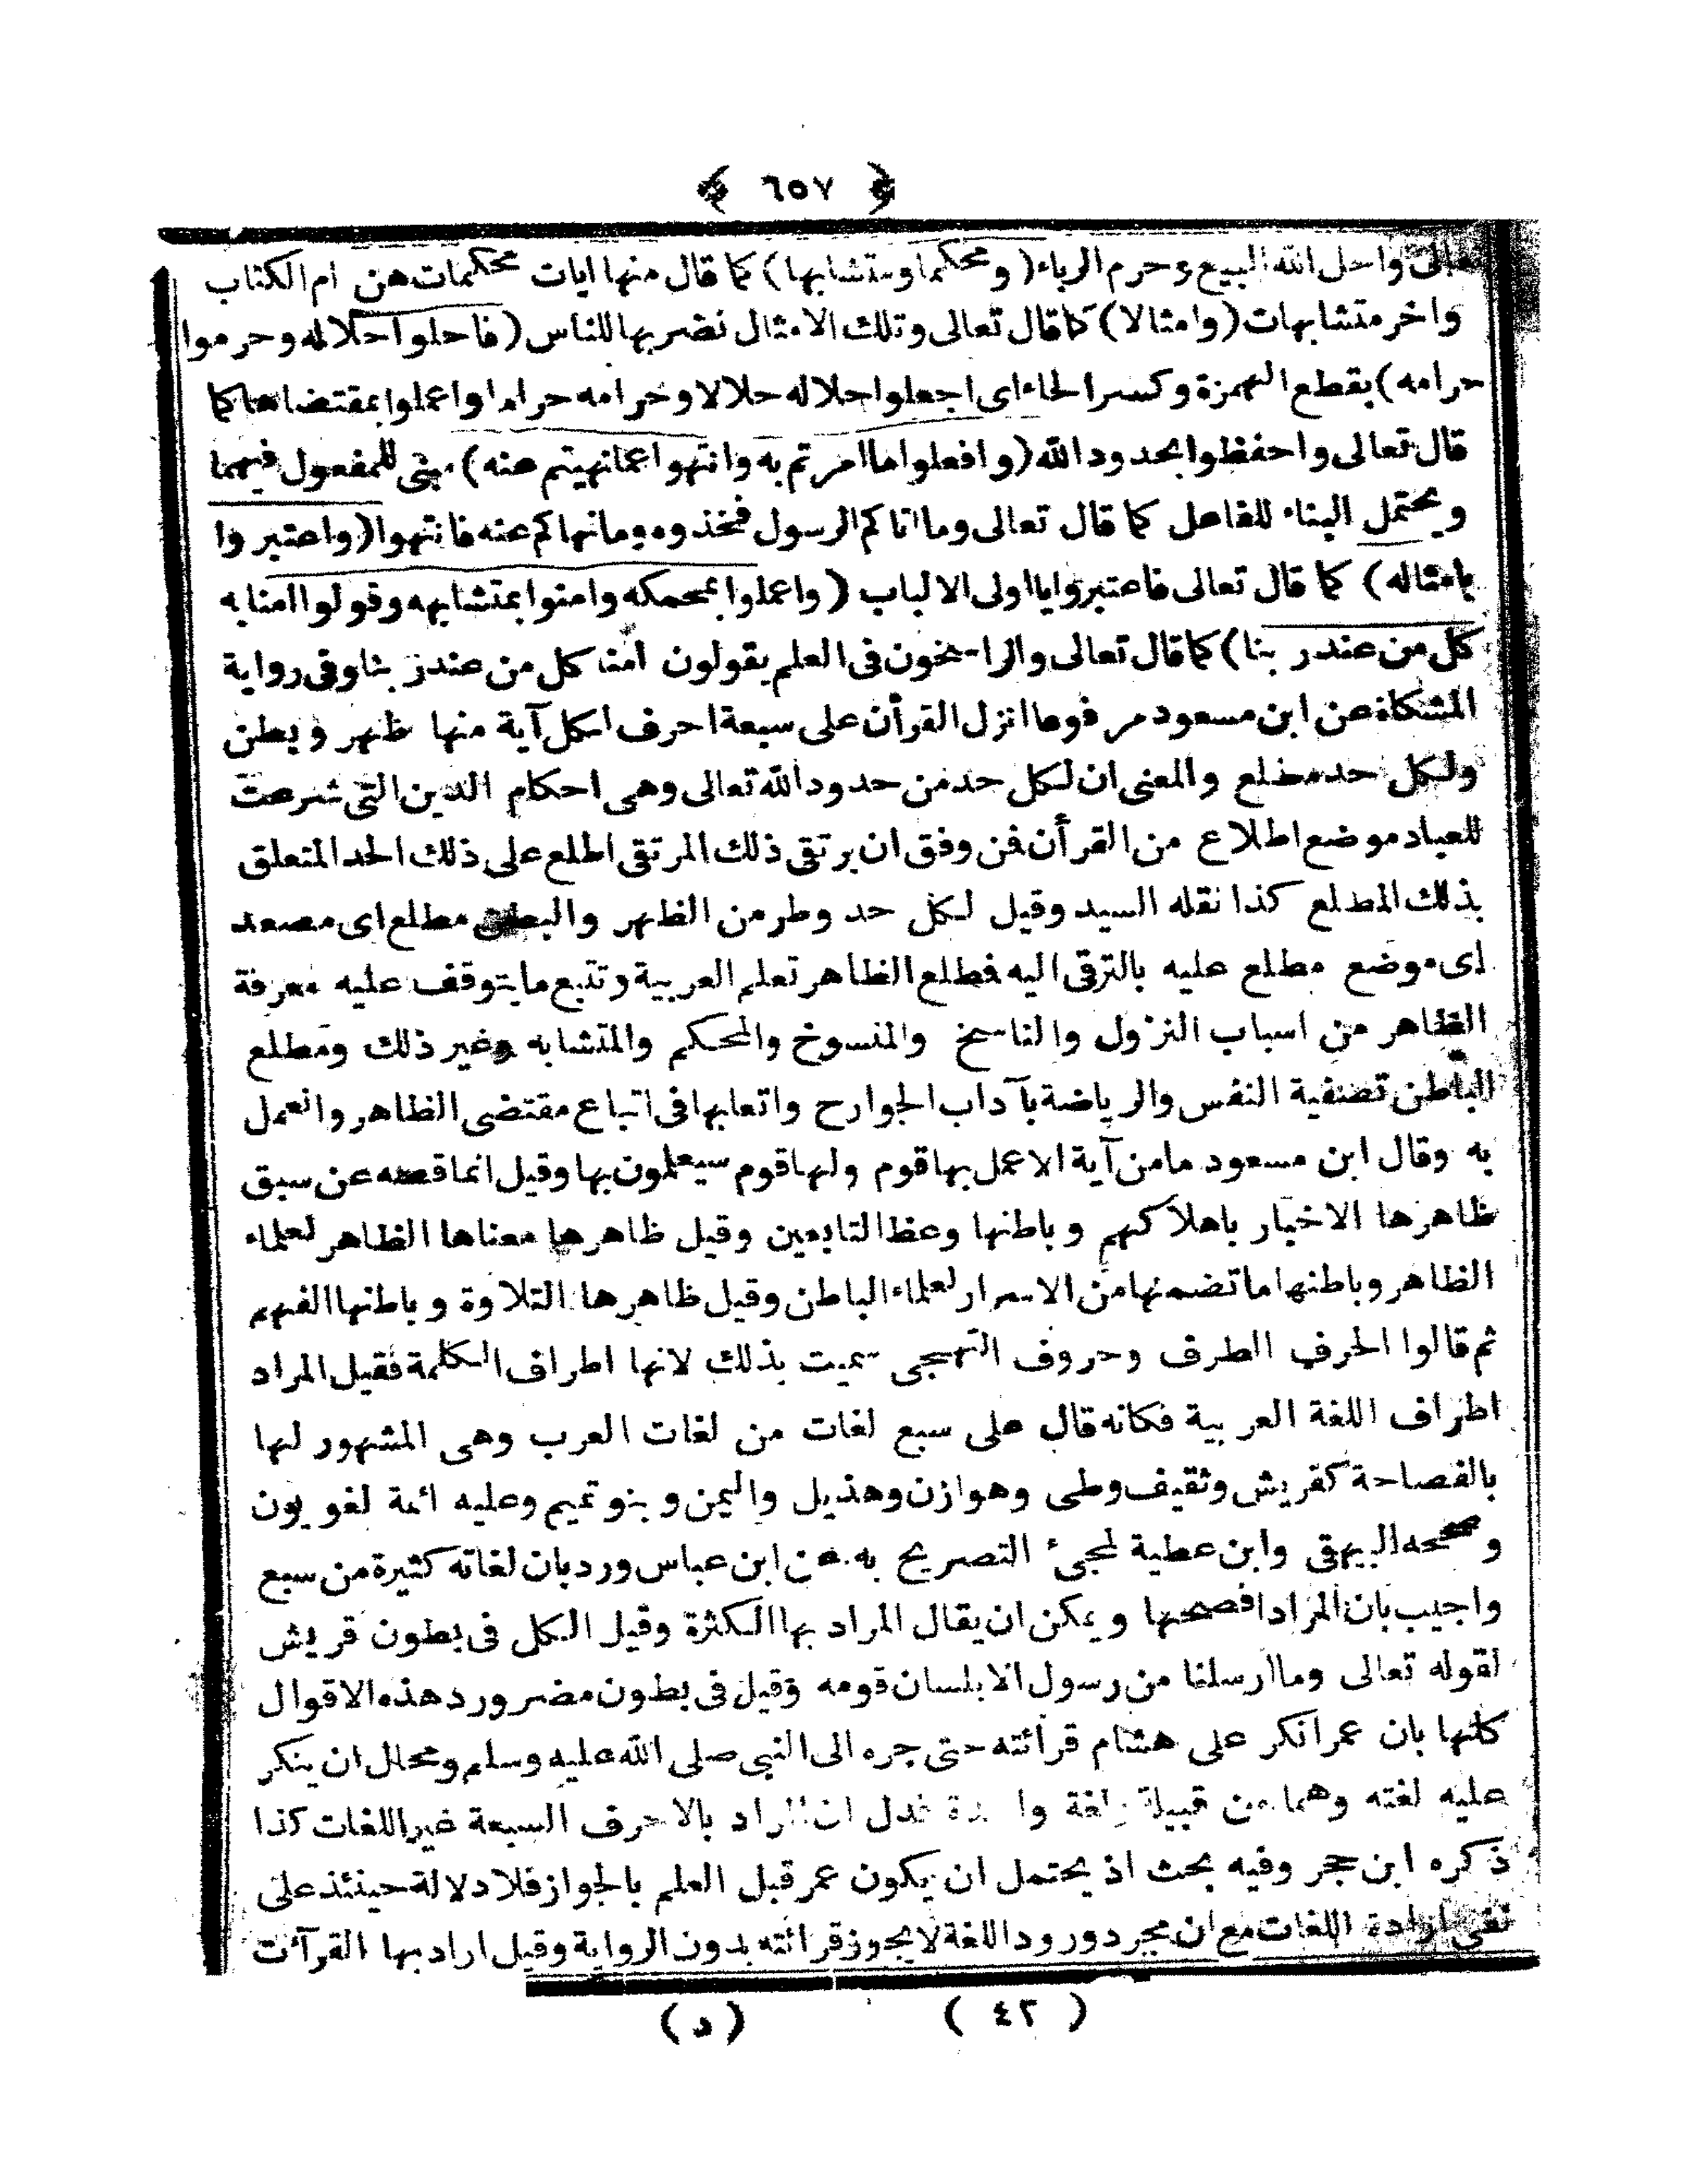 ﴿ ٦٥٧ ﴾
تعالى واحل الله البيع وحرم الرباء (ومحكما ومتشابها) كما قال منها ايات محكمات هن ام الكتاب
واخر متشابهات (وامثالا) كما قال تعالى وتلك الامثال نضربها للناس (فاحلوا حلاله وحرموا
حرامه) بقطع الهمزة وكسر الحاء اى اجعلوا حلاله حلالا وحرامه حراما واعملوا بمقتضاها كما
قال تعالى واحفظوا بحدود الله (وافعلوا ما امرتم به وانتهوا عما نهيتم عنه) مبنى للمفعول فيهما
ويحتمل البناء للفاعل كما قال تعالى وما اتاكم الرسول فخذوه وما نهاكم عنه فانتهوا (واعتبروا
بامثاله) كما قال تعالى فاعتبروا يا اولى الالباب (واعملوا بمحكمه وامنوا بمتشابهه وقولوا امنا به
كل من عند ربنا) كما قال تعالى والراسخون فى العلم يقولون امنا كل من عند ربنا وفى رواية
المشكاة عن ابن مسعود مرفوعا انزل القرأن على سبعة احرف لكل آية منها ظهر وبطن
ولكل حد مطلع والمعنى ان لكل حد من حدود الله تعالى وهى احكام الدين التى شرعت
للعباد موضع اطلاع من القرأن فمن وفق ان يرتقى ذلك المرتقى اطلع على ذلك الحد المتعلق
بذلك المطلع كذا نقله السيد وقيل لكل حد وطر من الظهر والبطن مطلع اى مصعد
اى موضع مطلع عليه بالترقى اليه فمطلع الظاهر تعلم العربية وتتبع ما يتوقف عليه معرفة
الظاهر من اسباب النزول والناسخ والمنسوخ والمحكم والمتشابه وغير ذلك ومطلع
الباطن تصفية النفس والرياضة بآداب الجوارح واتعابها فى اتباع مقتضى الظاهر والعمل
به وقال ابن مسعود ما من آية الا عمل بها قوم ولها قوم سيعملون بها وقيل انما قصه عن سبق
ظاهرها الاخبار باهلاكهم وباطنها وعظ التابعين وقيل ظاهرها معناها الظاهر لعلماء
الظاهر وباطنها ما تضمنها من الاسرار لعلماء الباطن وقيل ظاهرها التلاوة وباطنها الفهم
ثم قالوا الحرف الطرف وحروف التهجى سميت بذلك لانها اطراف الكلمة فقيل المراد
اطراف اللغة العربية فكانه قال على سبع لغات من لغات العرب وهى المشهور لها
بالفصاحة كقريش وثقيف وطى وهوازن وهذيل واليمن وبنو تميم وعليه ائمة لغويون
وصححه البيهقى وابن عطية لمجىء التصريح به عن ابن عباس ورد بان لغاته كثيرة من سبع
واجيب بان المراد افصحها ويمكن ان يقال المراد بها الكثرة وقيل الكل فى بطون قريش
لقوله تعالى وما ارسلنا من رسول الا بلسان قومه وقيل فى بطون مضر ورد هذه الاقوال
كلها بان عمر انكر على هشام قرائته حتى جره الى النبى صلى الله عليه وسلم ومحال ان ينكر
عليه لغته وهما من قبيلة ولغة واحدة فدل ان المراد بالاحرف السبعة غير اللغات كذا
ذكره ابن حجر وفيه بحث اذ يحتمل ان يكون عمر قبل العلم بالجواز فلا دلالة حينئذ على
نفى ارادة اللغات مع ان مجرد ورود اللغة لا يجوز قرائته بدون الرواية وقيل اراد بها القرآت
( ٤٢ ) (د)